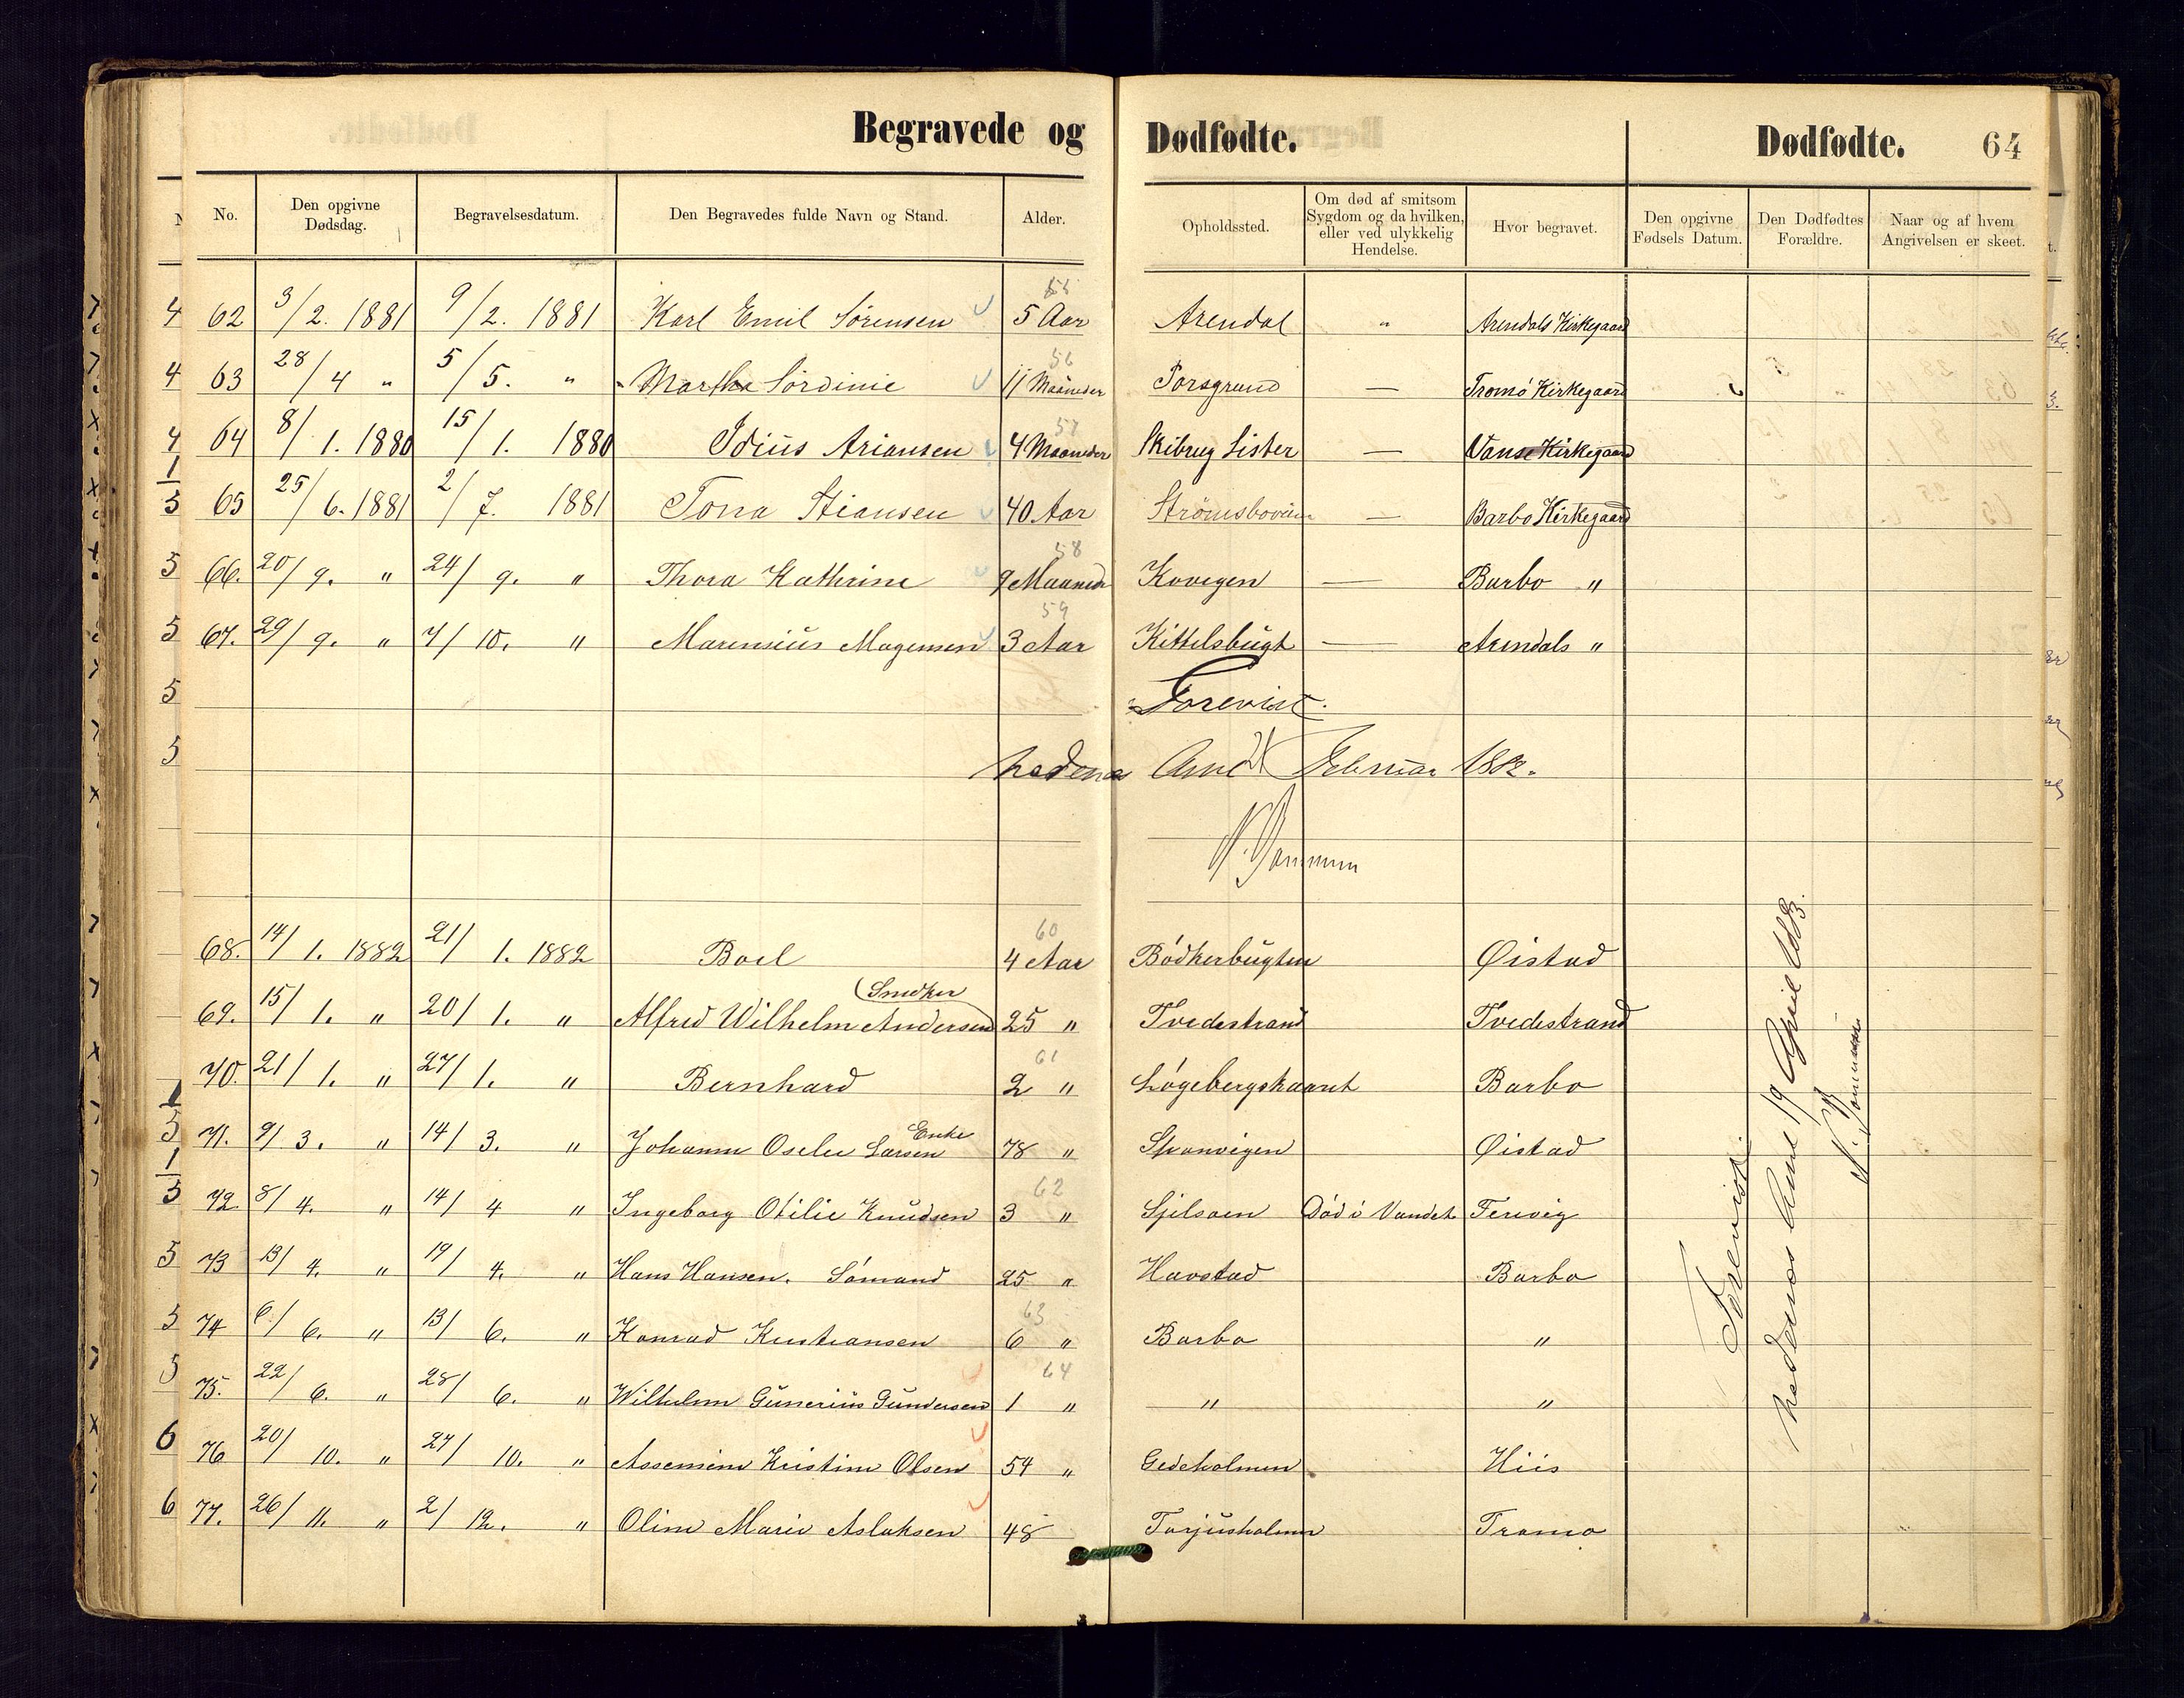 Begravede og Dødfødte. Dødfødte. 64
No. Den opgivne Dødsdag. Begravelsesdatum. Den Begravedes fulde Navn og Stand. Alder. Opholdssted. Om død af smitsom Sygdom og da hvilken, eller ved ulykkelig Hendelse. Hvor begravet. Den opgivne Fødsels Datum. Den Dødfødtes Forældre. Naar og af hvem Angivelsen er skeet.
62 3/2. 1881 9/2. 1881 Karl Emil Sørensen 5 Aar Arendal " Arendals Kirkegaard
56
63 28/4 " 5/5. " Martha Sørdinie 11 Maaneder Porsgrund — Tromø Kirkegaard
57
64 8/1. 1880 15/1. 1880 Idius Ariansen 4 Maaneder Skibrug Lister — Vanse Kirkegaard
65 25/6. 1881 2/7. 1881 Tona Stiansen 40 Aar — Barbo Kirkegaard
58
66. 20/9. " 24/9. " Thora Kathrine 9 Maaneder Kovigen — Barbo "
59
67. 29/9. " 7/10. " Marensius Mogensen 3 Aar Kittelsbugt — Arendals "
Forevist.
Nedenæs Amt 21 Februar 1882.
60
68. 14/1. 1882 21/1. 1882 Boel 4 Aar Bødkerbugten Øistad
69. 15/1. " 20/1. " Alfred Wilhelm Andersen (Snedker 25 " Tvedestrand Tvedestrand
61
70. 21/1. " 27/1. " Bernhard 2 " Løgebergskaaret Barbo
71. 9/3. " 14/3. " Johanne Oselie Larsen Enke 78 " Spanvigen Øistad
62
72. 8/4. " 14/4 " Ingeborg Otilie Knudsen 3 " Sjilsøen Død i Vandet Ferevig
73 13/4. " 19/4. " Hans Hansen. Sømand 25 " Havstad Barbo
63
74 6/6. " 13/6. " Konrad Kristiansen 6 " Barbo "
64
75. 22/6. " 28/6. " Wilhelm Gunerius Gundersen 1 " " "
76 20/10. " 27/10. " Assemine Kristine Olsen 54 " Gedeholmen Hiis
77. 26/11. " 2/12. " Oline Marie Aslaksen 48 Torjusholmen Tromø
Forevist.
Nedenæs Amt 19 April 1883.